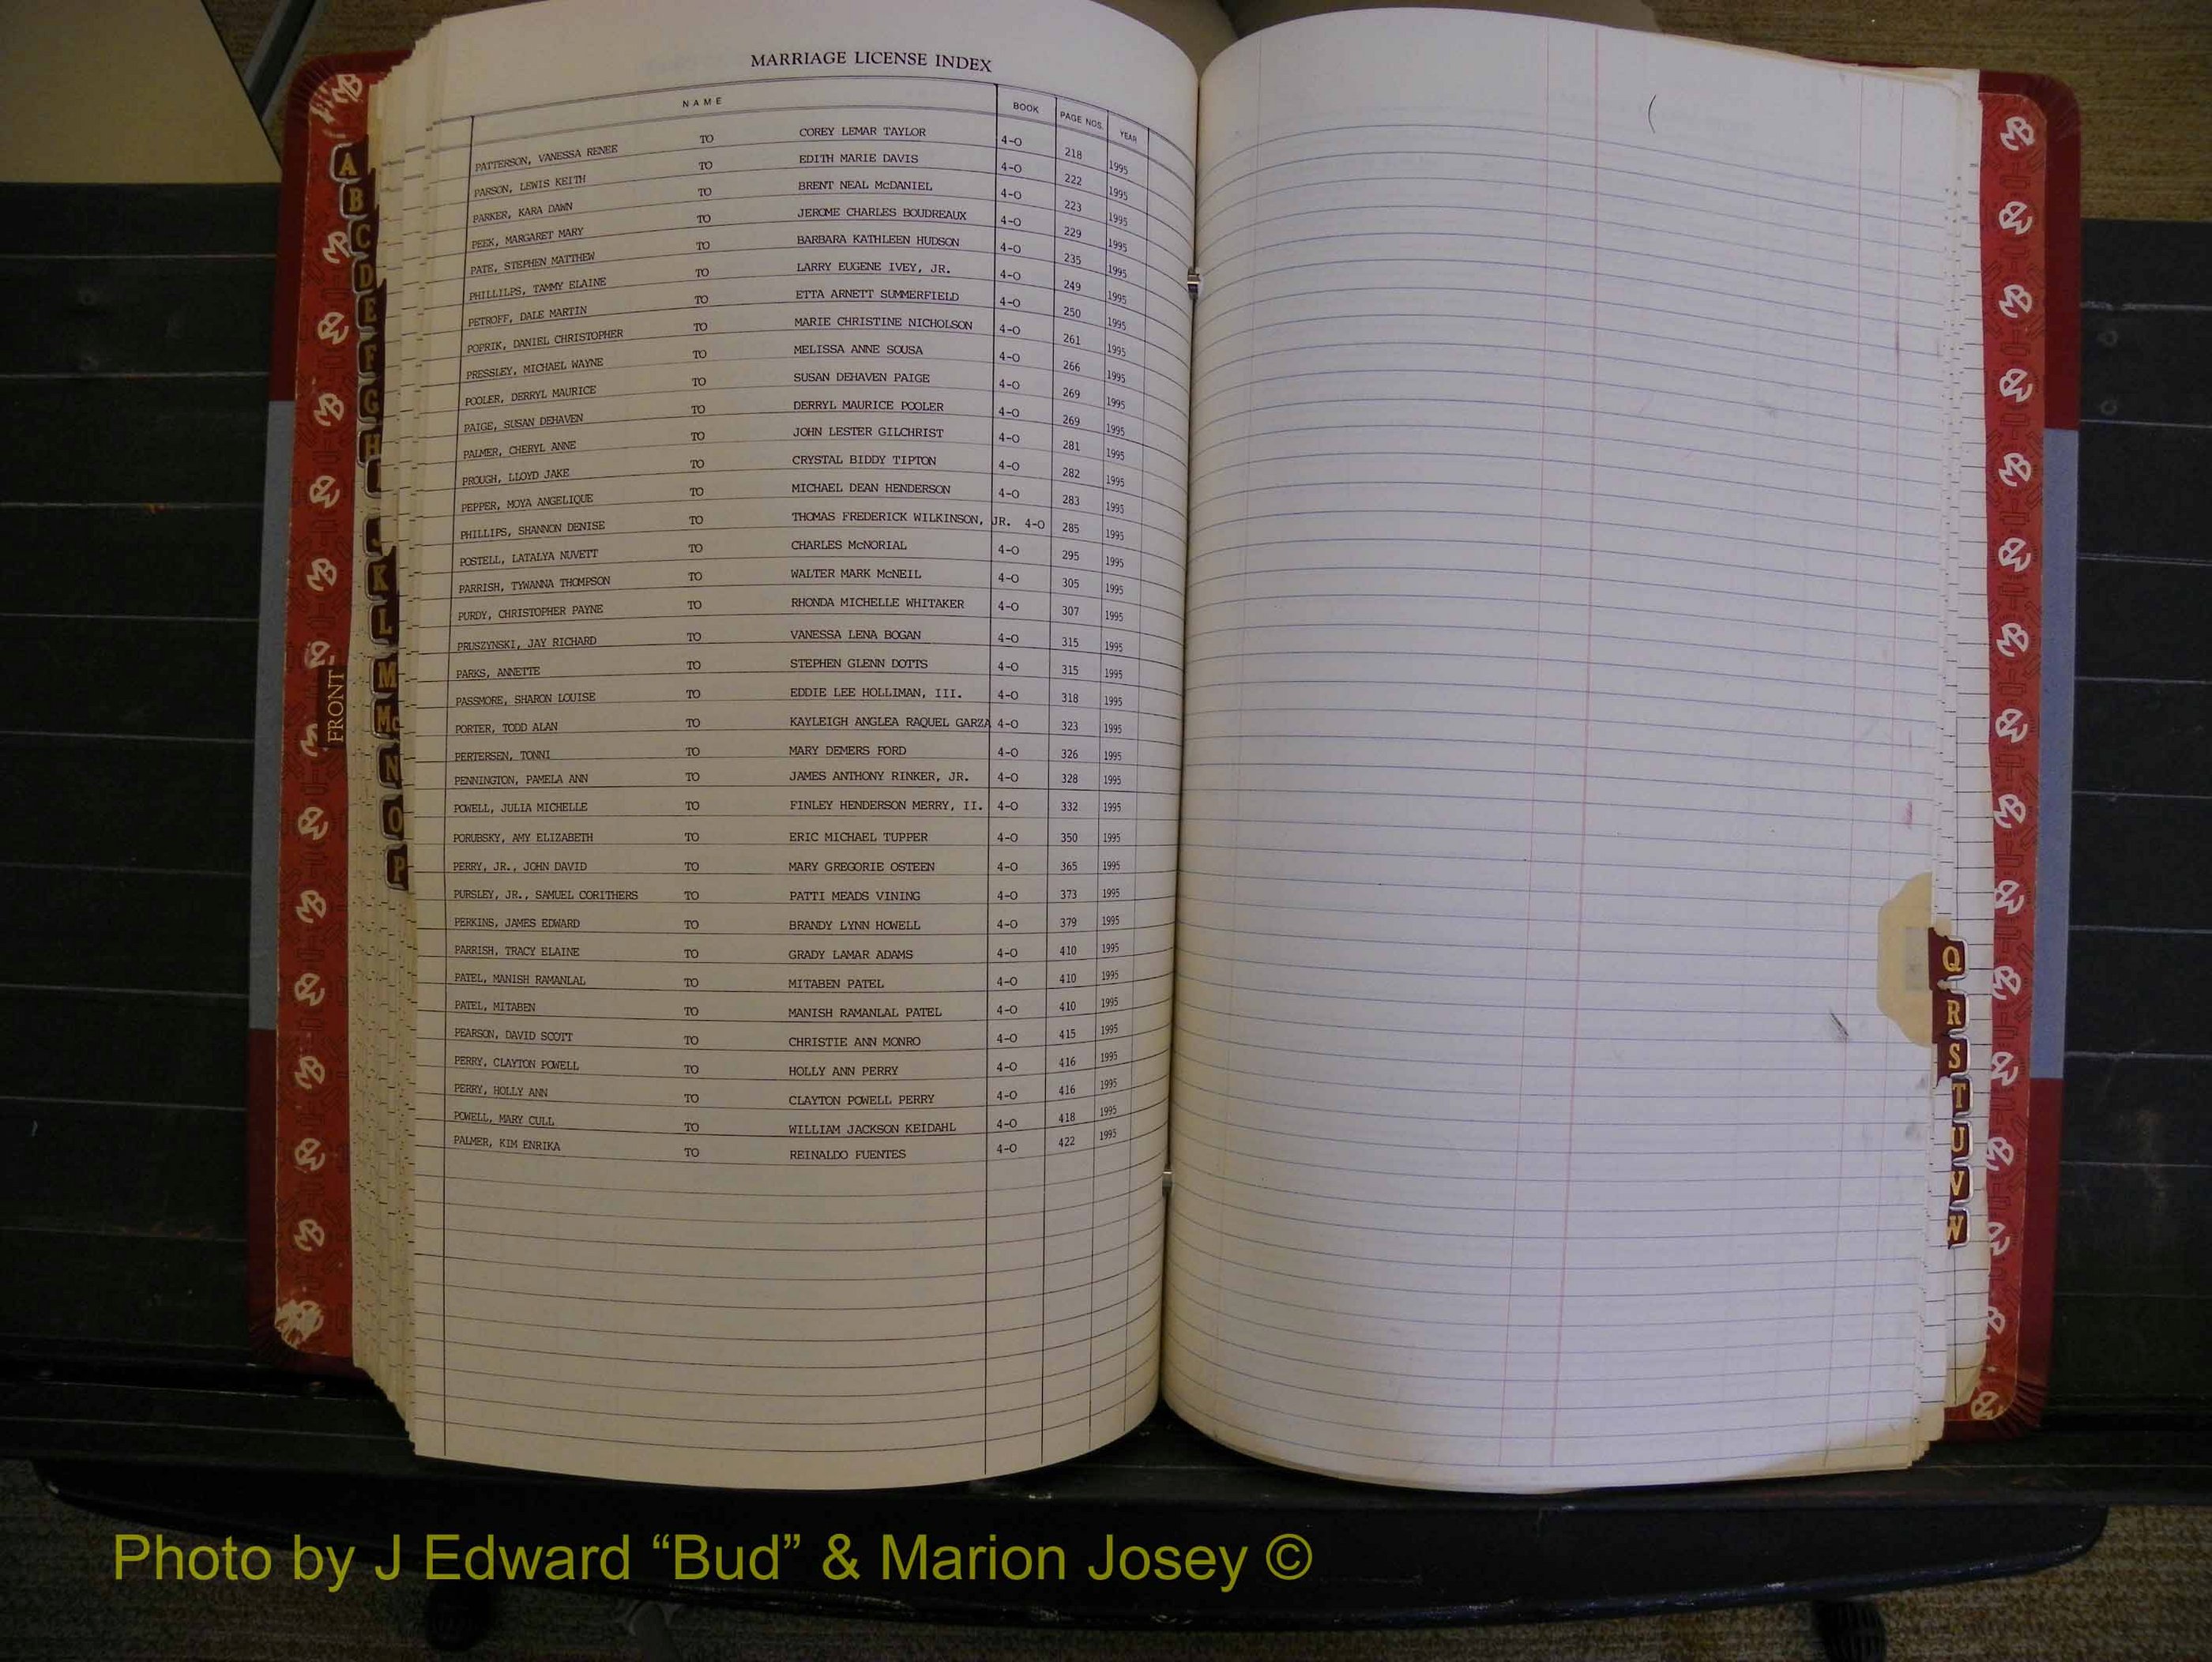 MARRIAGE LICENSE INDEX
NAME BOOK PAGE NOS. YEAR
PATTERSON, VANESSA RENEE TO COREY LEMAR TAYLOR 4-O 218 1995
PARSON, LEWIS KEITH TO EDITH MARIE DAVIS 4-O 222 1995
PARKER, KARA DAWN TO BRENT NEAL McDANIEL 4-O 223 1995
PEEK, MARGARET MARY TO JEROME CHARLES BOUDREAUX 4-O 229 1995
PATE, STEPHEN MATTHEW TO BARBARA KATHLEEN HUDSON 4-O 235 1995
PHILLILPS, TAMMY ELAINE TO LARRY EUGENE IVEY, JR. 4-O 249 1995
PETROFF, DALE MARTIN TO ETTA ARNETT SUMMERFIELD 4-O 250 1995
POPRIK, DANIEL CHRISTOPHER TO MARIE CHRISTINE NICHOLSON 4-O 261 1995
PRESSLEY, MICHAEL WAYNE TO MELISSA ANNE SOUSA 4-O 266 1995
POOLER, DERRYL MAURICE TO SUSAN DEHAVEN PAIGE 4-O 269 1995
PAIGE, SUSAN DEHAVEN TO DERRYL MAURICE POOLER 4-O 269 1995
PALMER, CHERYL ANNE TO JOHN LESTER GILCHRIST 4-O 281 1995
PROUGH, LLOYD JAKE TO CRYSTAL BIDDY TIPTON 4-O 282 1995
PEPPER, MOYA ANGELIQUE TO MICHAEL DEAN HENDERSON 4-O 283 1995
PHILLIPS, SHANNON DENISE TO THOMAS FREDERICK WILKINSON, JR. 4-O 285 1995
POSTELL, LATALYA NUVETT TO CHARLES McNORIAL 4-O 295 1995
PARRISH, TYWANNA THOMPSON TO WALTER MARK McNEIL 4-O 305 1995
PURDY, CHRISTOPHER PAYNE TO RHONDA MICHELLE WHITAKER 4-O 307 1995
PRUSZYNSKI, JAY RICHARD TO VANESSA LENA BOGAN 4-O 315 1995
PARKS, ANNETTE TO STEPHEN GLENN DOTTS 4-O 315 1995
PASSMORE, SHARON LOUISE TO EDDIE LEE HOLLIMAN, III. 4-O 318 1995
PORTER, TODD ALAN TO KAYLEIGH ANGLEA RAQUEL GARZA 4-O 323 1995
PERTERSEN, TONNI TO MARY DEMERS FORD 4-O 326 1995
PENNINGTON, PAMELA ANN TO JAMES ANTHONY RINKER, JR. 4-O 328 1995
POWELL, JULIA MICHELLE TO FINLEY HENDERSON MERRY, II. 4-O 332 1995
PORUBSKY, AMY ELIZABETH TO ERIC MICHAEL TUPPER 4-O 350 1995
PERRY, JR., JOHN DAVID TO MARY GREGORIE OSTEEN 4-O 365 1995
PURSLEY, JR., SAMUEL CORITHERS TO PATTI MEADS VINING 4-O 373 1995
PERKINS, JAMES EDWARD TO BRANDY LYNN HOWELL 4-O 379 1995
PARRISH, TRACY ELAINE TO GRADY LAMAR ADAMS 4-O 410 1995
PATEL, MANISH RAMANLAL TO MITABEN PATEL 4-O 410 1995
PATEL, MITABEN TO MANISH RAMANLAL PATEL 4-O 410 1995
PEARSON, DAVID SCOTT TO CHRISTIE ANN MONRO 4-O 415 1995
PERRY, CLAYTON POWELL TO HOLLY ANN PERRY 4-O 416 1995
PERRY, HOLLY ANN TO CLAYTON POWELL PERRY 4-O 416 1995
POWELL, MARY CULL TO WILLIAM JACKSON KEIDAHL 4-O 418 1995
PALMER, KIM ENRIKA TO REINALDO FUENTES 4-O 422 1995
A
B
C
D
E
F
G
H
I
J
K
L
M
Mc
N
O
P
FRONT
Q
R
S
T
U
V
W
Photo by J Edward “Bud” & Marion Josey ©